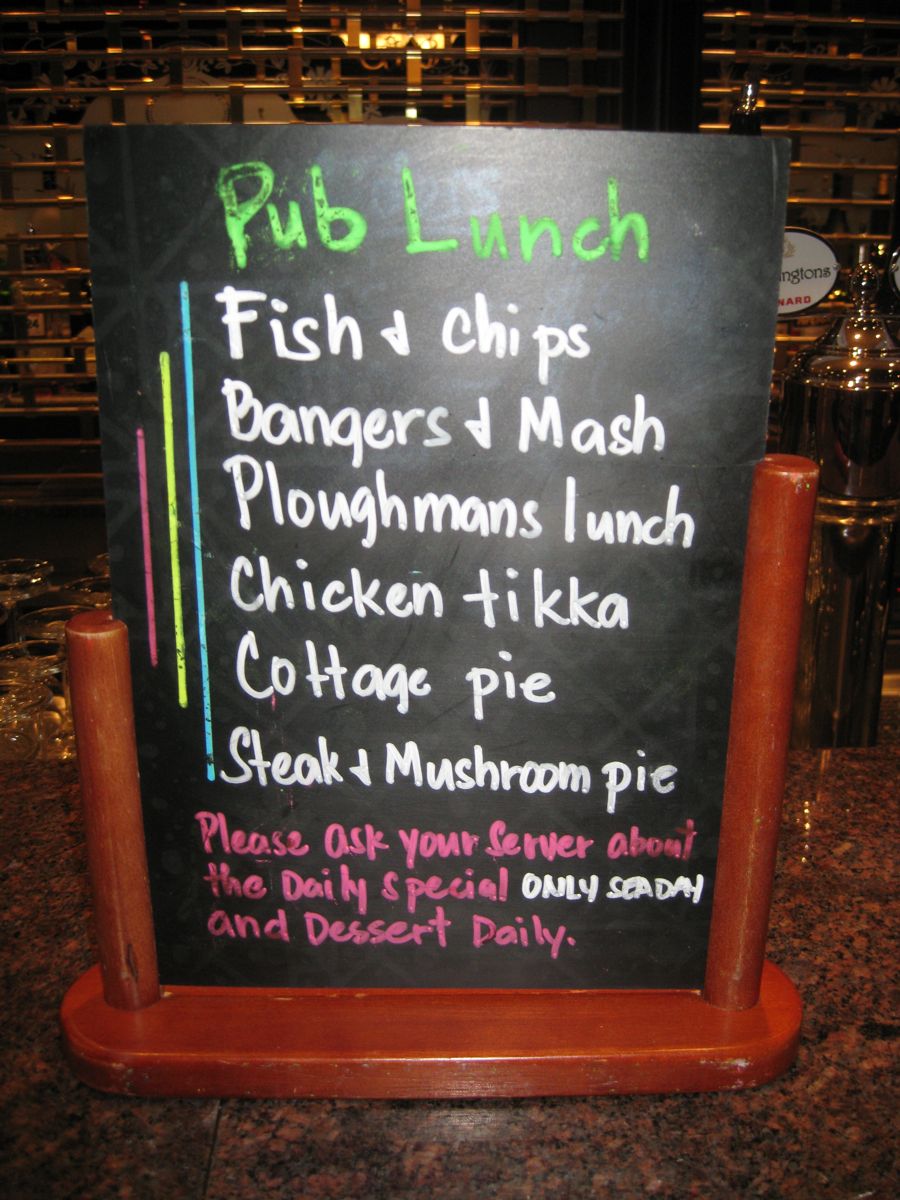 Pub Lunch
Fish & Chips
Bangers & Mash
Ploughmans lunch
Chicken tikka
Cottage pie
Steak & Mushroom pie
Please ask your Server about
the Daily Special ONLY SEADAY
and Dessert Daily.
ngtons
NARD
24